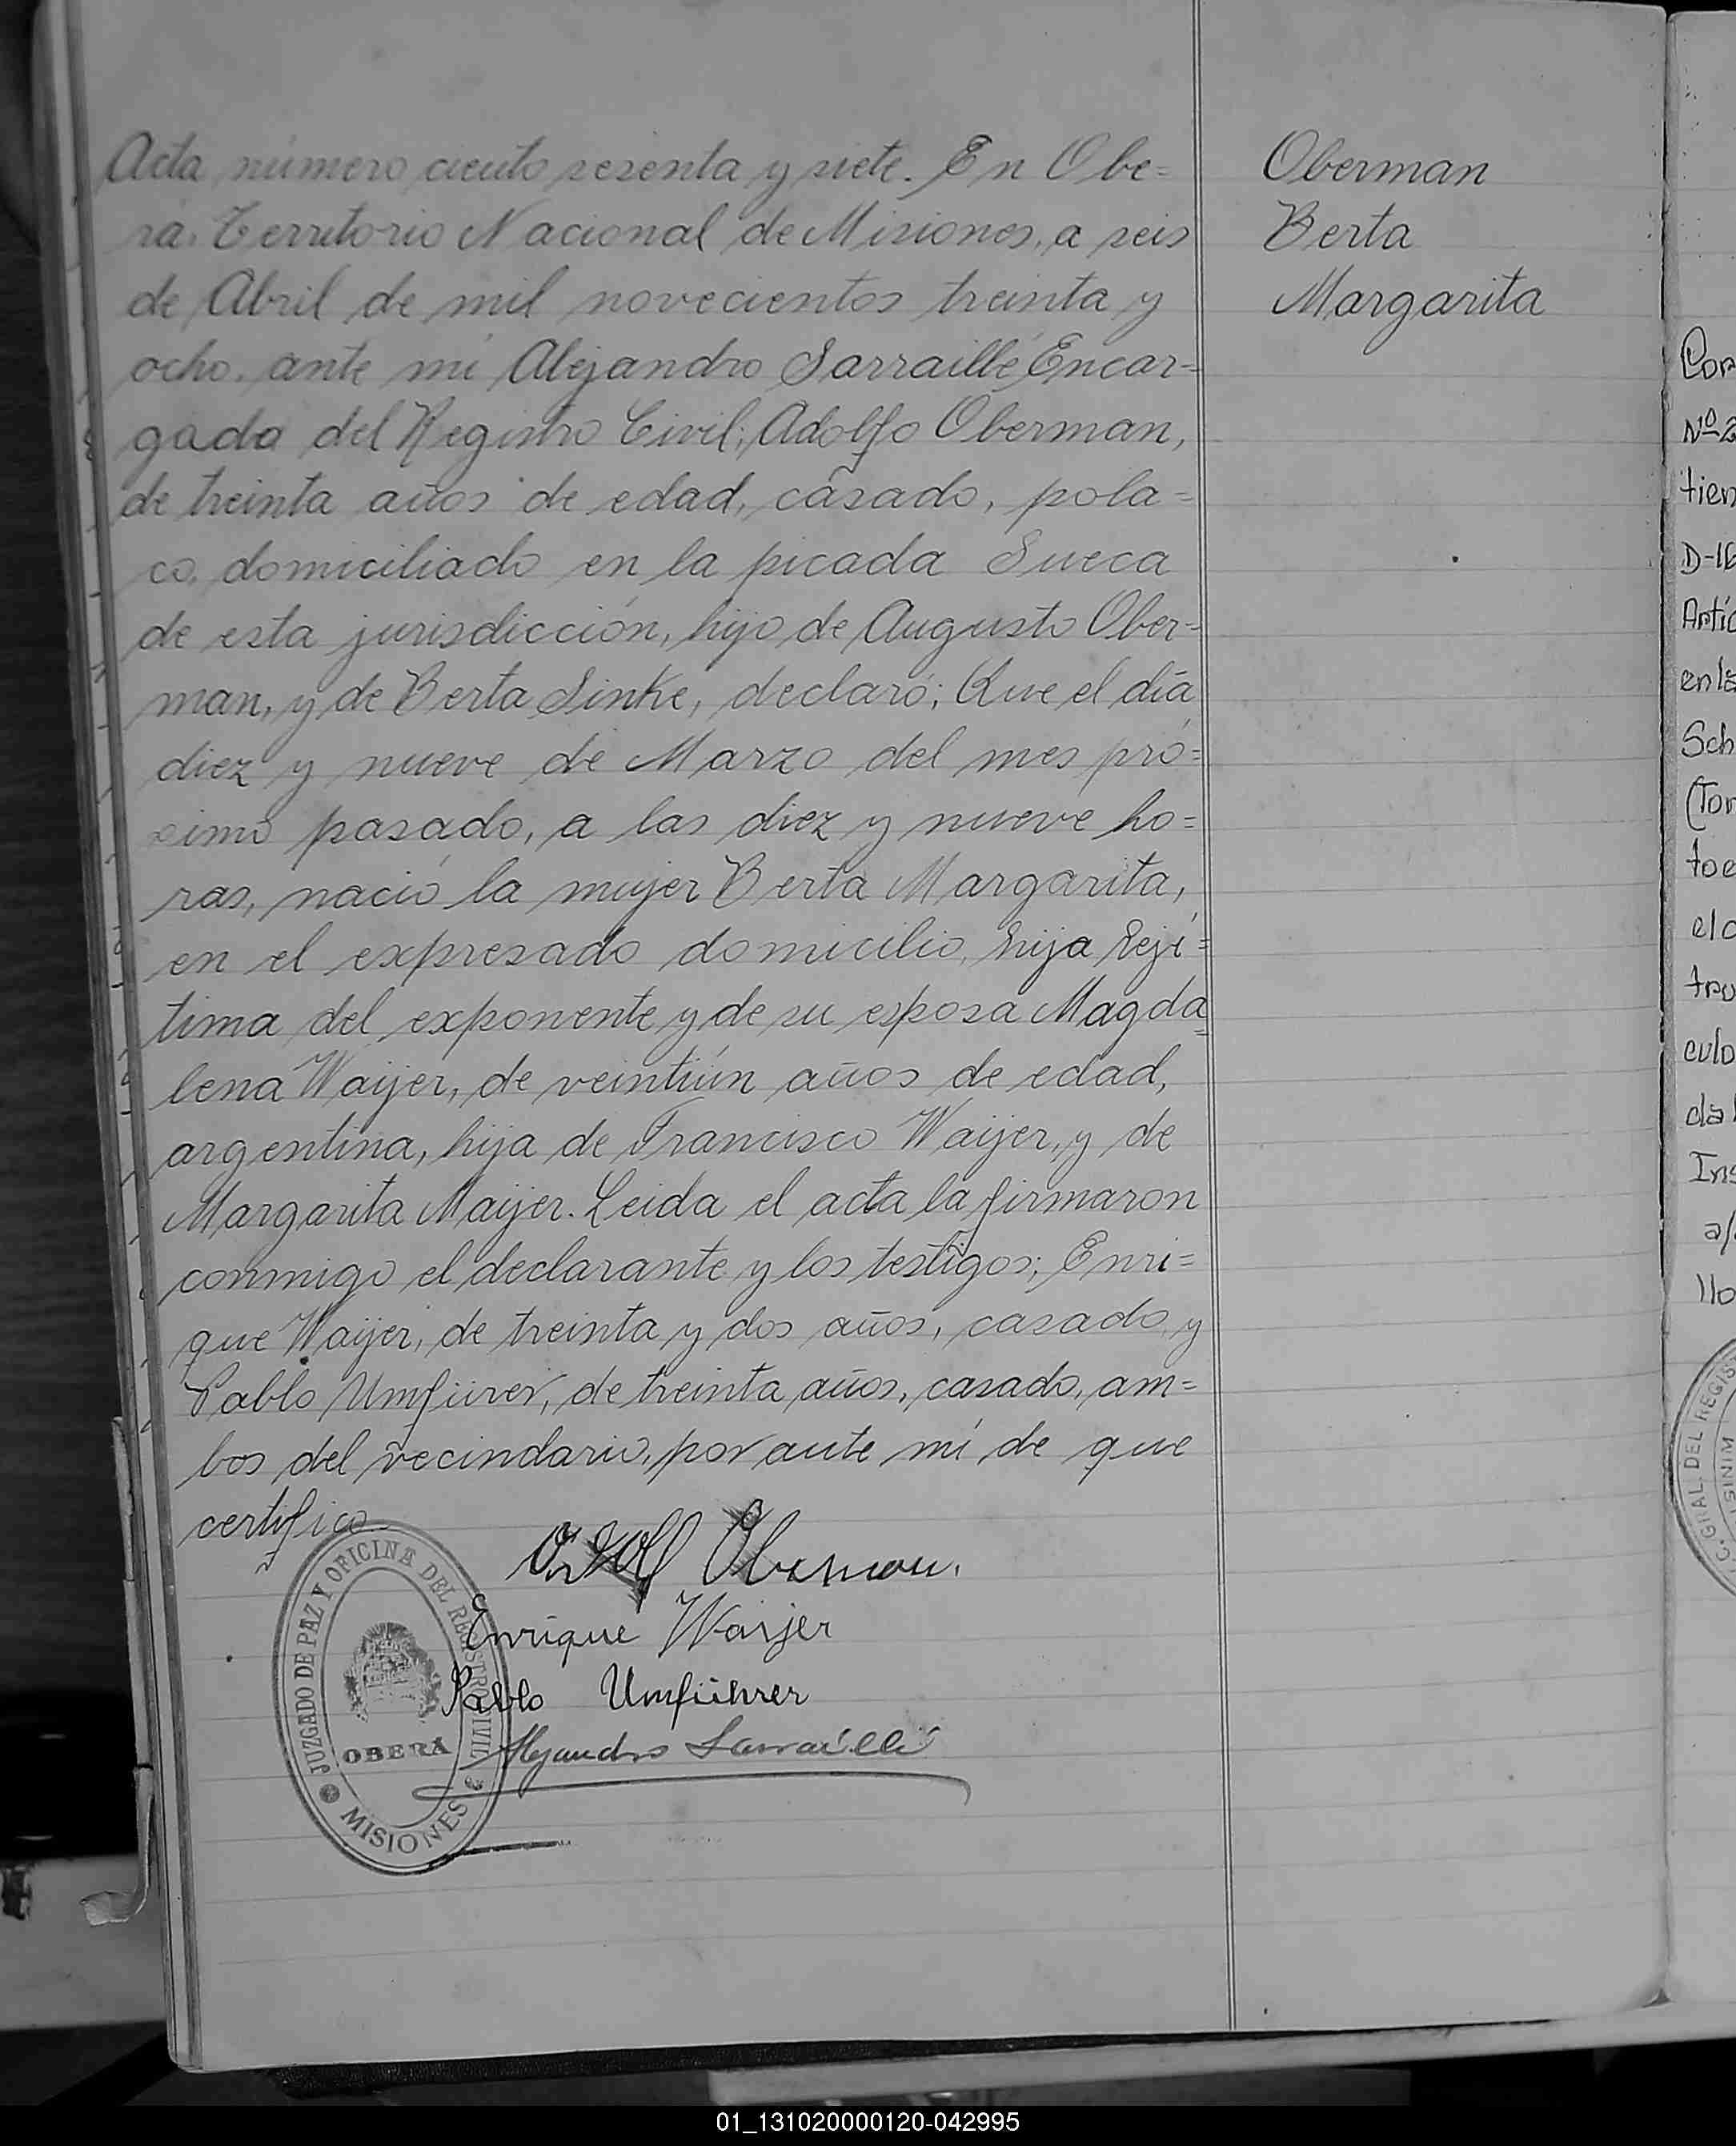 Acta número ciento sesenta y siete. En Obe=
rá. Territorio Nacional de Misiones, a seis
de Abril de mil novecientos treinta y
ocho. ante mí Alejandro Sarraillé Encar=
gado del Registro Civil; Adolfo Oberman,
de treinta años de edad, casado, pola=
co, domiciliado en la picada Sueca
de esta jurisdicción, hijo de Augusto Ober=
man, y de Berta Sinke, declaró; Que el día
diez y nueve de Marzo del mes pró=
ximo pasado, a las diez y nueve ho=
ras, nació la mujer Berta Margarita,
en el expresado domicilio, hija leji=
tima del exponente y de su esposa Magda=
lena Waijer, de veintiún años de edad,
argentina, hija de Francisco Waijer, y de
Margarita Maijer. Leida el acta la firmaron
conmigo el declarante y los testigos; Enri=
que Waijer, de treinta y dos años, casado, y
Pablo Umfürer, de treinta años, casado, am=
bos del vecindario, por ante mí de que
certifico
Oberman
Berta
Margarita
Adolf Oberman.
Enrique Waijer
Pablo Umführer
Alejandro Sarraillé
JUZGADO DE PAZ Y OFICINA DEL REGISTRO CIVIL
OBERÁ
MISIONES
Nº 2
D-16
Sch
GRAL. DEL REGIS
01_131020000120-042995